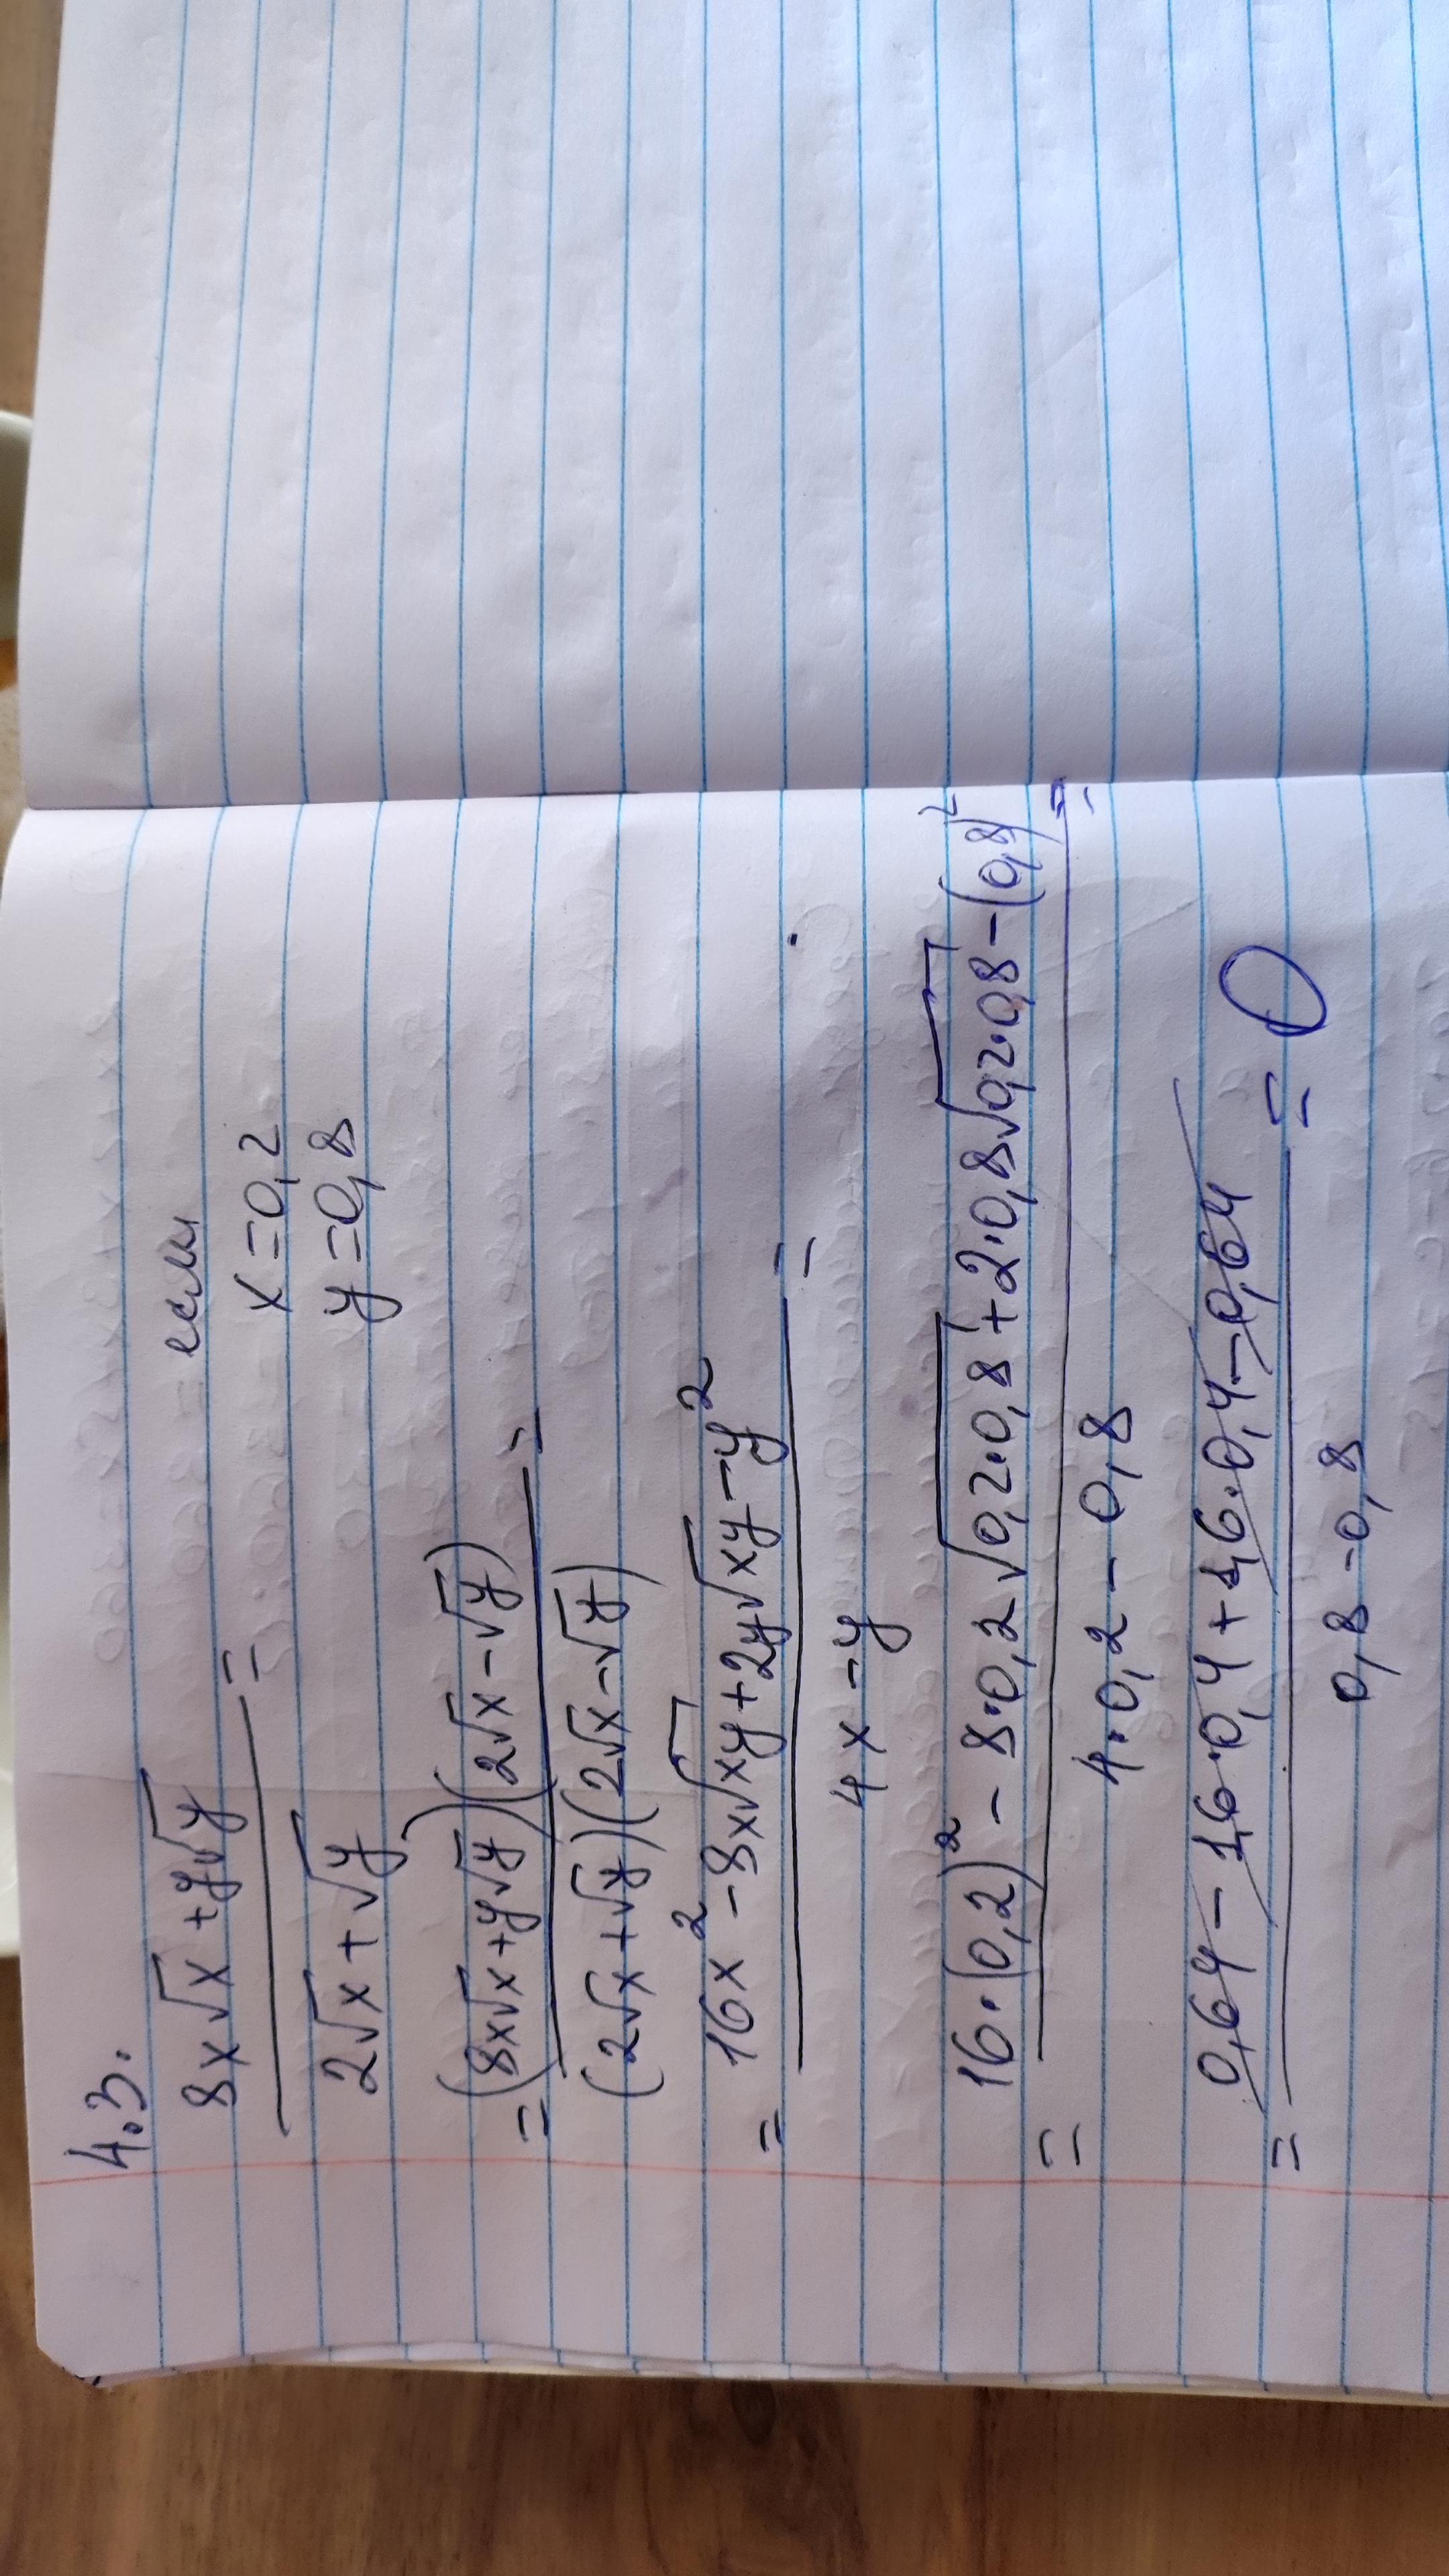 4.3.
8x√x + y√y = если
2√x + √y
x = 0,2
y = 0,8
= (8x√x + y√y)(2√x - √y) =
(2√x + √y)(2√x - √y)
= 16x² - 8x√xy + 2y√xy - y² =
4x - y
= 16·(0,2)² - 8·0,2√0,2·0,8 + 2·0,8√0,2·0,8 - (0,8)² =
4·0,2 - 0,8
= 0,64 - 1,6·0,4 + 1,6·0,4 - 0,64 = 0
0,8 - 0,8